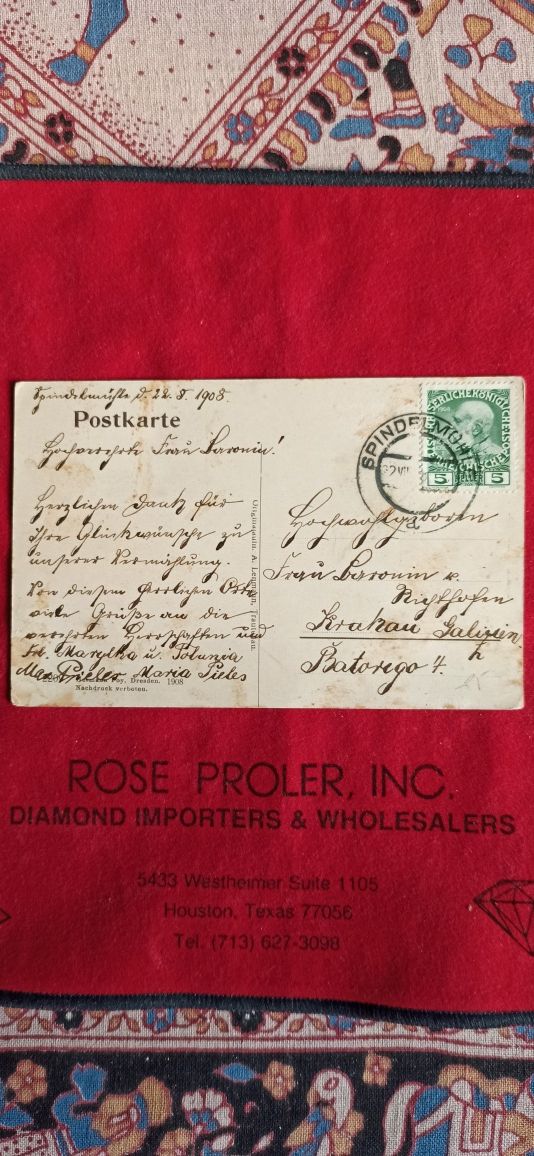 Spindelmühle d. 22. 8. 1908.
Postkarte
Hochverehrte Frau Baronin!
Herzlichen Dank für
Ihre Glückwünsche zu
unserer Vermählung.
Von diesem herrlichen Orte
viele Grüße an die
verehrten Herrschaften und
Frl. Marylka u.
Max Pieles Maria Pieles
Dresden. 1908
Nachdruck verboten.
A. Lengmann, Trautenau.
SPINDELMÜHLE
5 5
Hochwohlgeboren
Frau Baronin v.
Richthofen
Krakau Galizien
Batorego 4.
ROSE PROLER, INC.
DIAMOND IMPORTERS & WHOLESALERS
5433 Westheimer Suite 1105
Houston, Texas 77056
Tel. (713) 627-3098